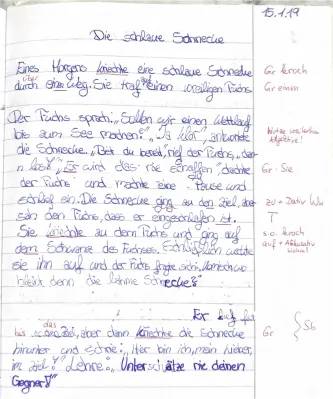 15.1.19
Die schlaue Schnecke
Eines Morgens kriechte eine schlaue Schnecke Gr kroch
über
durch einen Weg. Sie traf einen uraligen Fuchs. Gr einem
Der Fuchs sprach: „Sollen wir einen Wettlauf
bis zum See machen?" „Ja klar" antwortete
die Schnecke. „Bist du bereit", rief der Fuchs, „dann
los!" „Es wird das nie schaffen", dachte Gr: Sie
der Fuchs und machte eine Pause und
schlief ein. Die Schnecke ging an den Ziel, aber zu + Dativ
sah den Fuchs, dass er eingeschlafen ist. T
Sie kriechte zu dem Fuchs und ging auf s.o. kroch
dem Schwanz des Fuchses. Schließlich weckte auf + Akkusativ
sie ihn auf und der Fuchs fragte sich,
bleibt denn die lahme Schnecke?"
das
bis Ziel, aber dann kriechte die Schnecke Gr Sb
hinunter und schrie: „Hier bin ich, mein lieber,
im Ziel!" Lehre: „Unterschätze nie deinen
Gegner!"